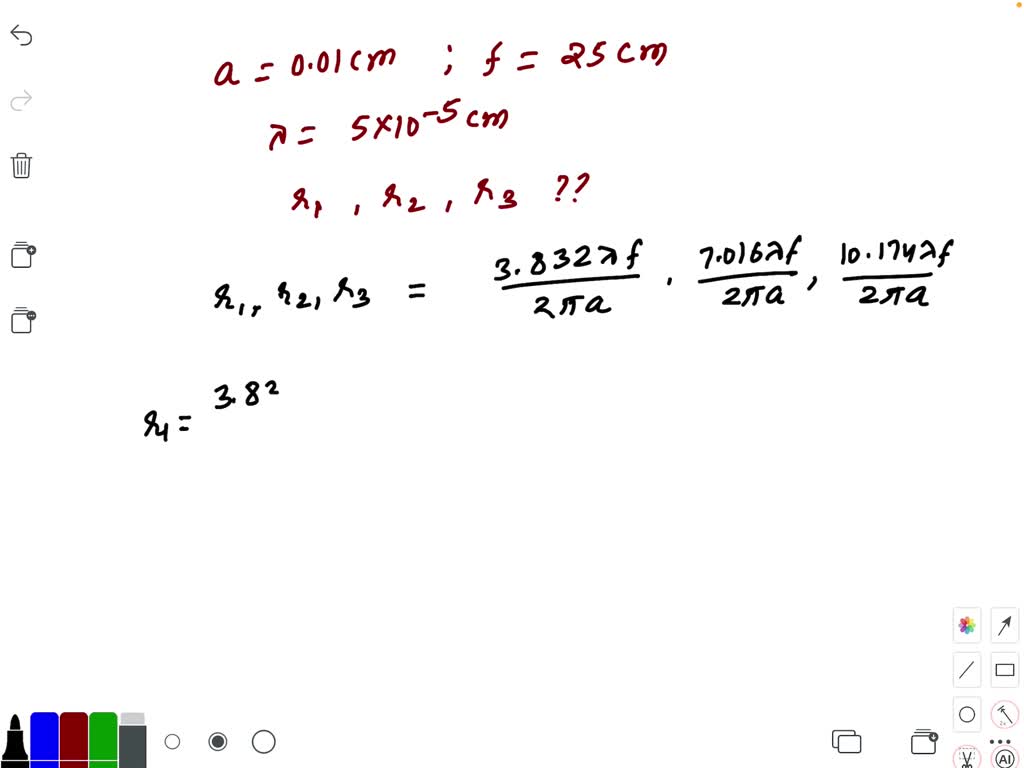 a = 0.01cm ; f = 25 cm
λ = 5×10⁻⁵ cm
r₁, r₂, r₃ ??
r₁, r₂, r₃ = 3.832λf/2πa . 7.016λf/2πa, 10.174λf/2πa
r₁ = 3.82
AI